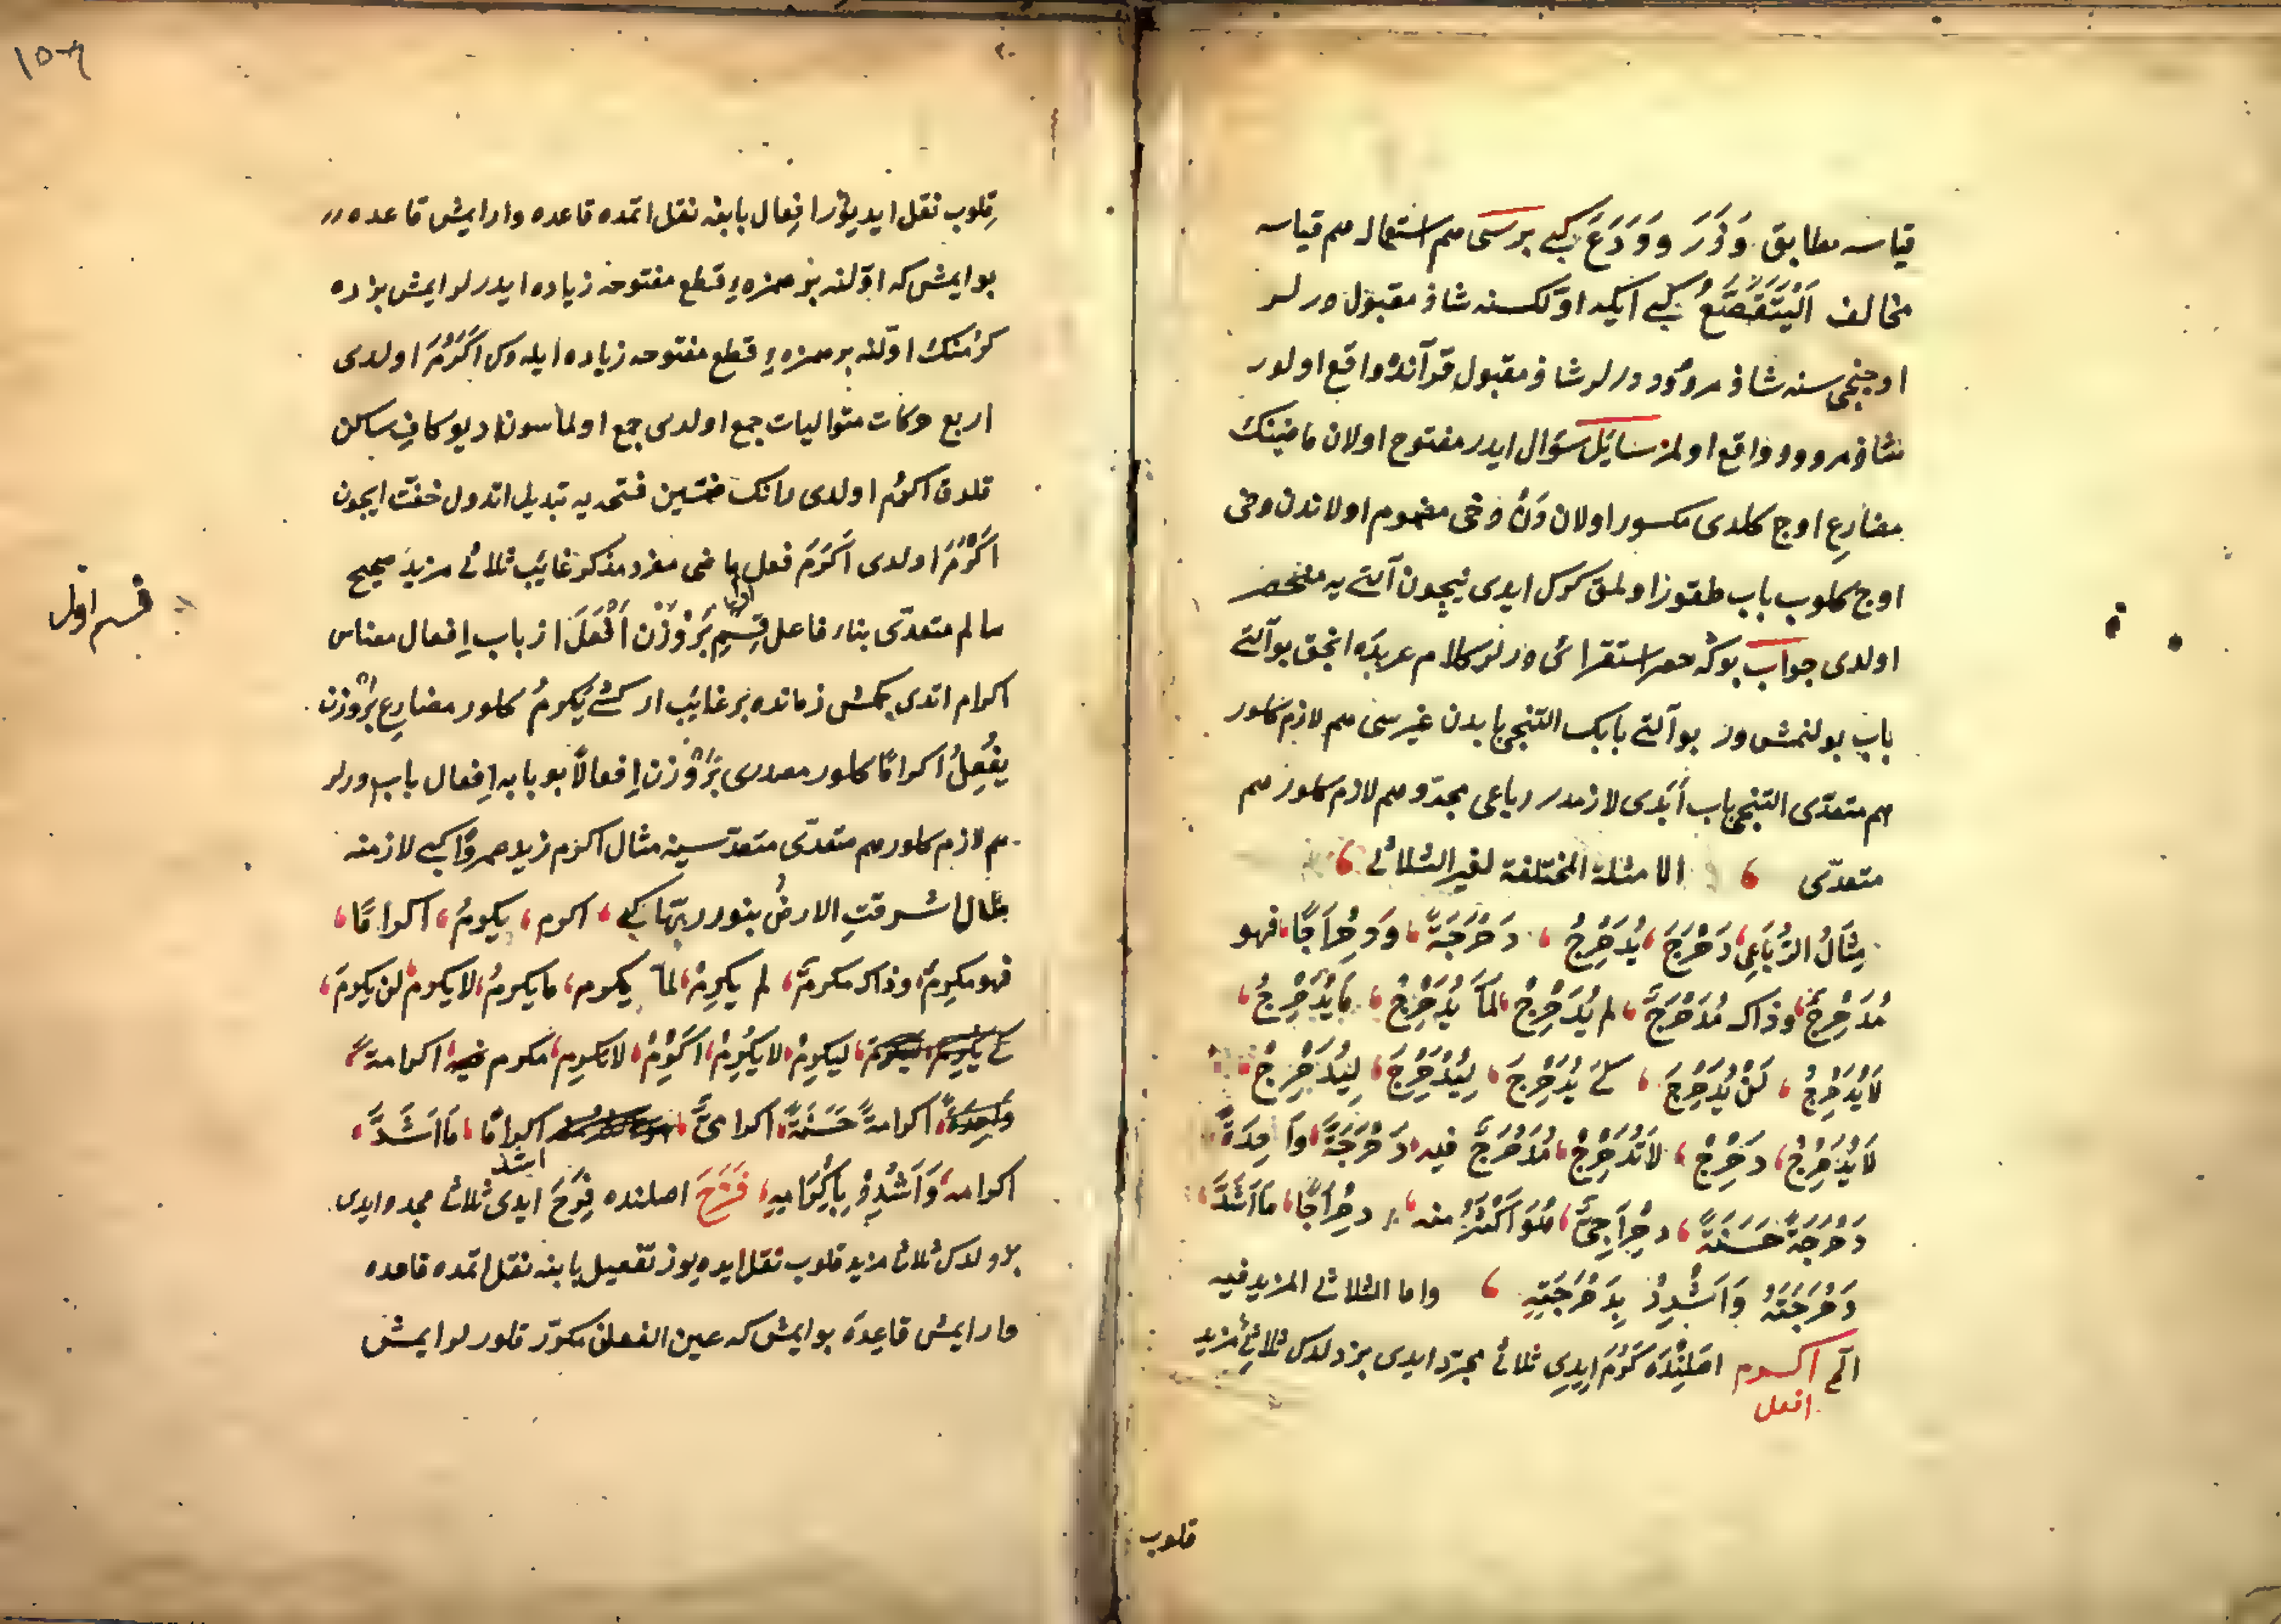 قیاسه مطابق وَذَرَ وَوَدَعَ کبی برسی هم استعماله هم قیاسه
مخالف اَلْیَتَقَصَّعُ کبی ایکی اوّلکسنه شاذ مقبول درلر
اوجنجی سنه شاذ مردود درلر شاذ مقبول قرآنده واقع اولور
شاذ مردود واقع اولمز سَایَٔل سؤال ایدر مفتوح اولان ماضینک
مضارعِ اوج کلدی مکسور اولان دَنْ دخی مضموم اولاندن دخی
اوج کلوب باب طقوز اولمق کرک ایدی نیچون آلتی یه منحصر
اولدی جواب بوکه حصر استقرائی درلر کلام عربده انجق بو آلتی
باب بولنمش در بو آلتی بابک التنجی بابدن غیرسی هم لازم کلور
هم متعدّی التنجی باب اَبَدی لازمدر رباعی مجرّد هم لازم کلور هم
متعدّی الامثلة المختلفة لغیر الثلاثی
مِثَالُ الرُّبَاعِی دَحْرَجَ یُدَحْرِجُ دَحْرَجَةً وَدِحْرَاجًا فهو
مُدَحْرِجٌ وذاک مُدَحْرَجٌ لم یُدَحْرِجْ لَمَّا یُدَحْرِجْ مَا یُدَحْرِجُ
لَا یُدَحْرِجُ لَنْ یُدَحْرِجَ کَیْ یُدَحْرِجَ لِیُدَحْرِجَ لِیُدَحْرِجْ
لَا یُدَحْرِجْ دَحْرِجْ لَا تُدَحْرِجْ مُدَحْرَجٌ فیه دَحْرَجَةً وَاحِدَةً
دَحْرَجَةً حَسَنَةً دِحْرَاجِیٌّ هُوَ اَکْثَرُ منه دِحْرَاجًا مَا اَشَدَّ
دَحْرَجَتَهُ وَاَشْدِدْ بِدَحْرَجَتِهِ واما الثلاثی المزید فیه
اکرم اصلِنْدَه کَرُمَ ایدِی ثلاثی مجرّد ایدی بز دلدک ثلاثیٔ مزید
افعل
قلوب
قِلوب نقل ایدیوز اِفِعال بابنه نقل اتمده قاعده وارایمش قاعده
بوایمش که اوّلنه بر همزهٔ قطع مفتوحه زیاده ایدرلر ایمش بزده
کرُمنک اوّلنه بر همزهٔ قطع مفتوحه زیاده ایله دک اَکَرُمَ اولدی
اربع حرکات متوالیات جمع اولدی جمع اولماسون دیو کافِ ساکن
قلدق اکرُم اولدی رانک ضمّسین فتحه یه تبدیل اتدوک خفّت ایچون
اَکْرَمَ اولدی اَکْرَمَ فعلِ ماضی مفرد مذکّر غایٔب ثلاثی مزید صحیح
سالم متعدّی بناء فاعل قِسِمِ بَرْوَزْن اَفْعَلَ از باب اِفعال معناس
قسم اوّل
اکرام اتدی کچمش زمانده بر غایٔب ار کشی یُکرمُ کلور مضارعِ بَرْوزن
یفْعِلُ اکرامًا کلور مصدری بَرْوَزن اِفعالًا بو بابه اِفعال باب درلر
هم لازم کلور هم متعدّی متعدّ سینه مثال اکرم زید عمروًا کبی لازمنه
مثال اشرقتِ الارضُ بنور ربّها کبی اکرم یکرمُ اکرامًا
فهو مکرِمٌ وذاک مکرمٌ لم یکرِمْ لمّا یکرم ما یکرمُ لا یکرمُ لن یکرمَ
کی یکرِمَ لیکرمَ لیکرِمْ لا یکْرِمْ اَکْرِمْ لا تکرِم مکرم فیه اکرامةً
واحِدَةً اکرامةً حَسَنَةً اکرامیٌّ اکرامًا مَا اَشَدَّ
اشد
اکرامه وَاَشْدِدْ بِاِکْرَامِهِ فَرَّحَ اصلنده فِرَحَ ایدی ثلاثی مجرد ایدی
بز دلدک ثلاثی مزید قلوب نقل ایده یوز تفعیل بابنه نقل اتمده قاعده
وارایمش قاعِدَه بوایمش که عین الفعلن مکرّر قلورلر ایمش